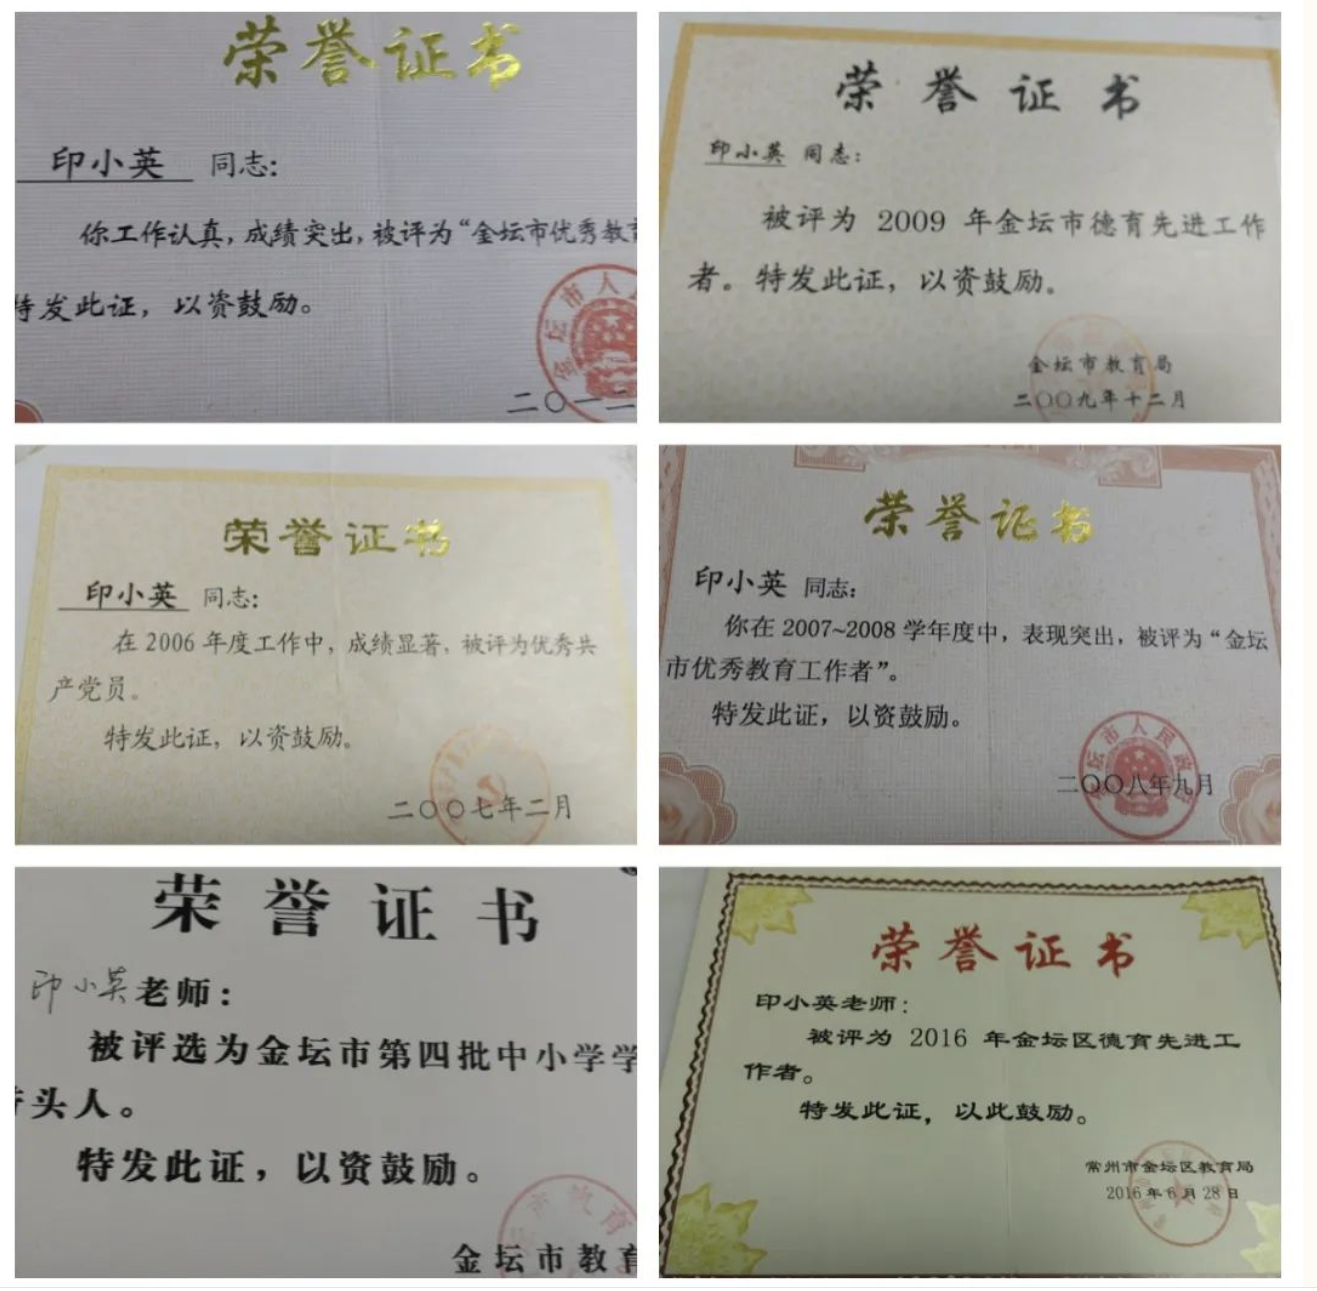 荣誉证书
印小英 同志:
你工作认真,成绩突出,被评为“金坛市优秀教育
特发此证,以资鼓励。
金坛市人
二〇一二
荣誉证书
印小英 同志:
被评为 2009 年金坛市德育先进工作
者。特发此证,以资鼓励。
金坛市教育局
二〇〇九年十二月
荣誉证书
印小英 同志:
在2006年度工作中,成绩显著,被评为优秀共
产党员。
特发此证,以资鼓励。
二〇〇七年二月
荣誉证书
印小英 同志:
你在2007~2008学年度中,表现突出,被评为“金坛
市优秀教育工作者”。
特发此证,以资鼓励。
坛市人民政
二〇〇八年九月
荣誉证书
印小英老师:
被评选为金坛市第四批中小学学
头人。
特发此证,以资鼓励。
金坛市教育
荣誉证书
印小英老师:
被评为 2016 年金坛区德育先进工
作者。
特发此证,以此鼓励。
常州市金坛区教育局
2016年6月28日